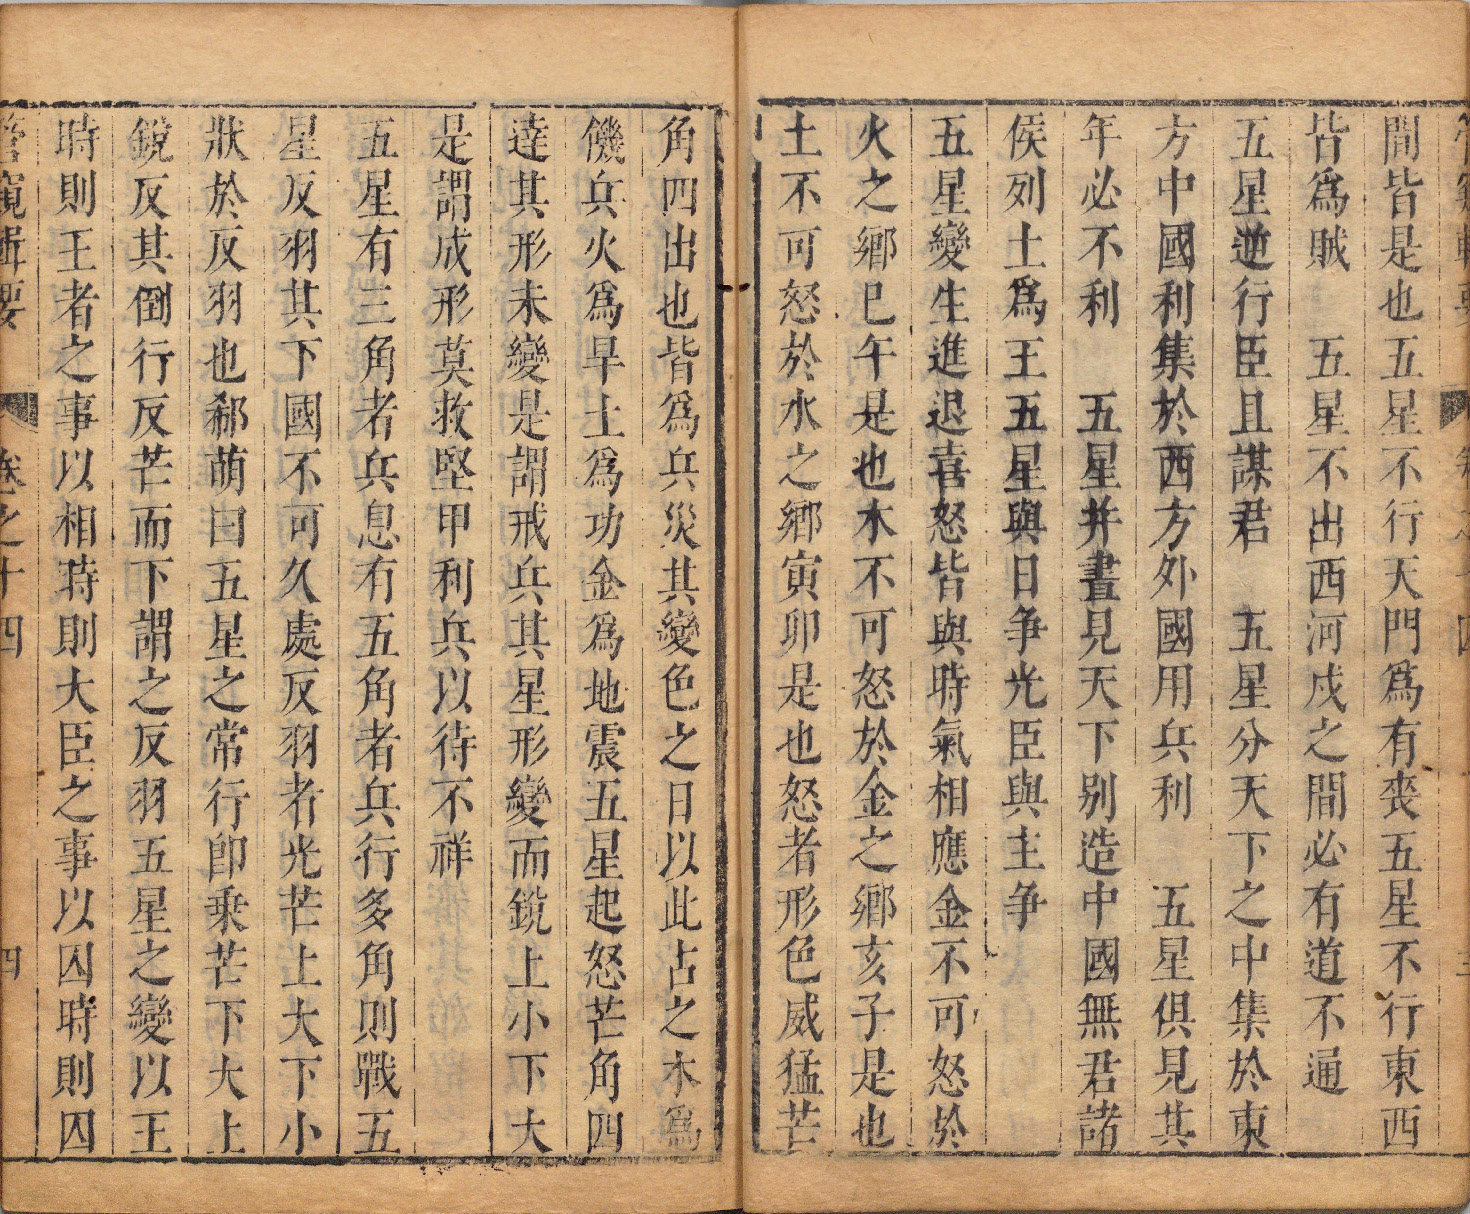 間皆是也五星不行天門爲有喪五星不行東西
皆爲賊　五星不出西河戍之間必有道不通
五星逆行臣且謀君　五星分天下之中集於東
方中國利集於西方外國用兵利　五星俱見其
年必不利　五星并晝見天下别造中國無君諸
侯列土爲王五星與日争光臣與主争
五星變生進退喜怒皆與時氣相應金不可怒於
火之鄉巳午是也木不可怒於金之鄉亥子是也
土不可怒於水之鄉寅卯是也怒者形色威猛芒
角四出也皆爲兵災其變色之日以此占之木爲
饑兵火爲旱土爲功金爲地震五星起怒芒角四
達其形未變是謂戒兵其星形變而鏡上小下大
是謂成形莫救堅甲利兵以待不祥
五星有三角者兵息有五角者兵行多角則戰五
星反羽其下國不可久處反羽者光芒上大下小
狀於反羽也郗萌曰五星之常行卽乗芒下大上
鏡反其倒行反芒而下謂之反羽五星之變以王
時則王者之事以相時則大臣之事以囚時則囚
管窺輯要　卷之十四　四